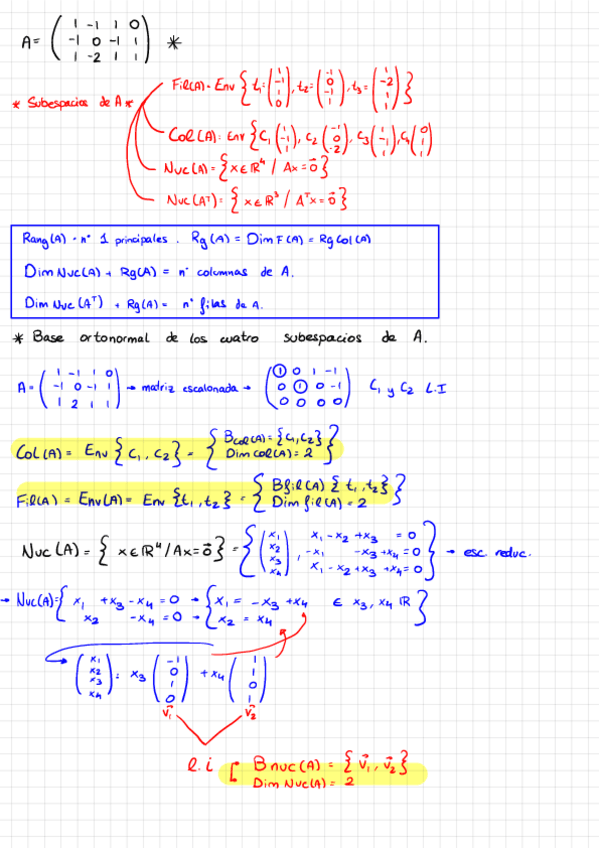 A = ( 1 -1 1 0 ; -1 0 -1 1 ; 1 -2 1 1 ) *
Fil(A) = Env { t₁ = ( 1 -1 1 0 ), t₂ = ( -1 0 -1 1 ), t₃ = ( 1 -2 1 1 ) }
* Subespacios de A *
Col(A) = Env { C₁ ( 1 -1 1 ), C₂ ( -1 0 -2 ), C₃ ( 1 -1 1 ), C₄ ( 0 1 1 )
Nuc(A) = { x ∈ ℝ⁴ / Ax = 0⃗ }
Nuc(Aᵀ) = { x ∈ ℝ³ / Aᵀx = 0⃗ }
Rang(A) = nº 1 principales. Rg(A) = Dim F(A) = Rg Col(A)
Dim Nuc(A) + Rg(A) = nº columnas de A.
Dim Nuc(Aᵀ) + Rg(A) = nº filas de A.
* Base ortonormal de los cuatro subespacios de A.
A = ( 1 -1 1 0 ; -1 0 -1 1 ; 1 2 1 1 ) → matriz escalonada → ( 1 0 1 -1 ; 0 1 0 -1 ; 0 0 0 0 ) C₁ y C₂ L.I
Col(A) = Env { C₁, C₂ } = { Bcol(A) = {C₁, C₂} Dim col(A) = 2 }
Fil(A) = Env(A) = Env {t₁, t₂} = { Bfil(A) { t₁, t₂ } Dim fil(A) = 2 }
Nuc(A) = { x ∈ ℝ⁴ / Ax = 0⃗ } = { ( x₁ x₂ x₃ x₄ ), x₁ - x₂ + x₃ = 0 ; -x₁ - x₃ + x₄ = 0 ; x₁ - x₂ + x₃ + x₄ = 0 } → esc. reduc.
→ Nuc(A) = { x₁ + x₃ - x₄ = 0 → { x₁ = -x₃ + x₄ ∈ x₃, x₄ ℝ }
x₂ - x₄ = 0 → x₂ = x₄
( x₁ x₂ x₃ x₄ ) = x₃ ( -1 0 1 0 ) + x₄ ( 1 1 0 1 )
v⃗₁ v⃗₂
l.i [ Bnuc(A) = { v⃗₁, v⃗₂ }
Dim Nuc(A) = 2